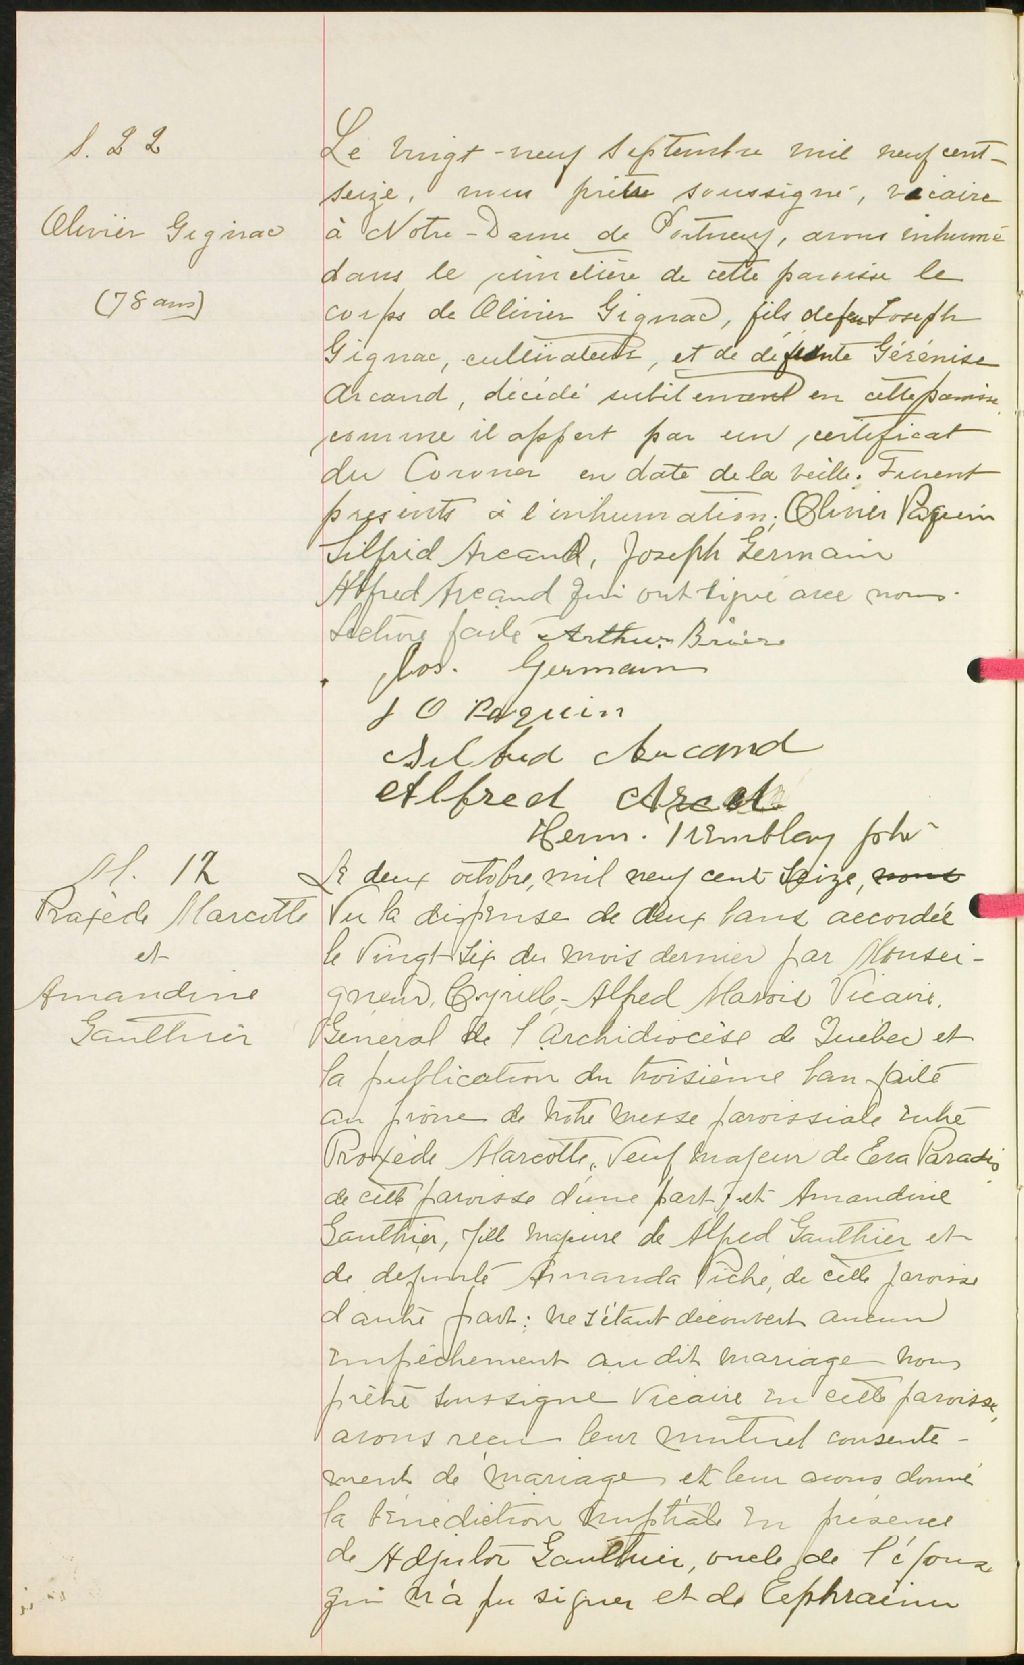 S. 22
Olivier Gignac
(78 ans)
Le vingt-neuf septembre mil neuf cent-
seize, nous prêtre soussigné, vicaire
à Notre-Dame de Portneuf, avons inhumé
dans le cimetière de cette paroisse le
corps de Olivier Gignac, fils de feu Joseph
Gignac, cultivateur, et de défunte Gérénise
Arcand, décédé subitement en cette paroisse
comme il appert par un certificat
du Coroner en date de la veille. Furent
présents à l'inhumation; Olivier Paquin
Silfrid Arcand, Joseph Germain
Alfred Arcand qui ont signé avec nous.
Lecture faite Arthur Brière
Jos. Germain
J O Paquin
Silfrid Arcand
Alfred Arcand
Herm. Tremblay ptre
M. 12
Praxède Marcotte
et
Amandine
Gauthier
Le deux octobre, mil neuf cent seize, nous
Vu la dispense de deux bans accordée
le vingt-six du mois dernier par Monsei-
gneur, Cyrille-Alfred Marois Vicaire,
Général de l'Archidiocèse de Québec et
la publication du troisième ban faite
au prône de notre messe paroissiale entre
Praxède Marcotte, veuf majeur de Eva Paradis
de cette paroisse d'une part, et Amandine
Gauthier, fille majeure de Alfred Gauthier et
de defunte Amanda Piché, de cette paroisse
d'autre part; ne s'étant découvert aucun
empêchement au dit mariage nous
prêtre soussigné vicaire en cette paroisse,
avons reçu leur mutuel consente-
ment de mariage et leur avons donné
la bénédiction nuptiale en présence
de Adjutor Gauthier, oncle de l'épouse
qui n'a pu signer et de Ephraim